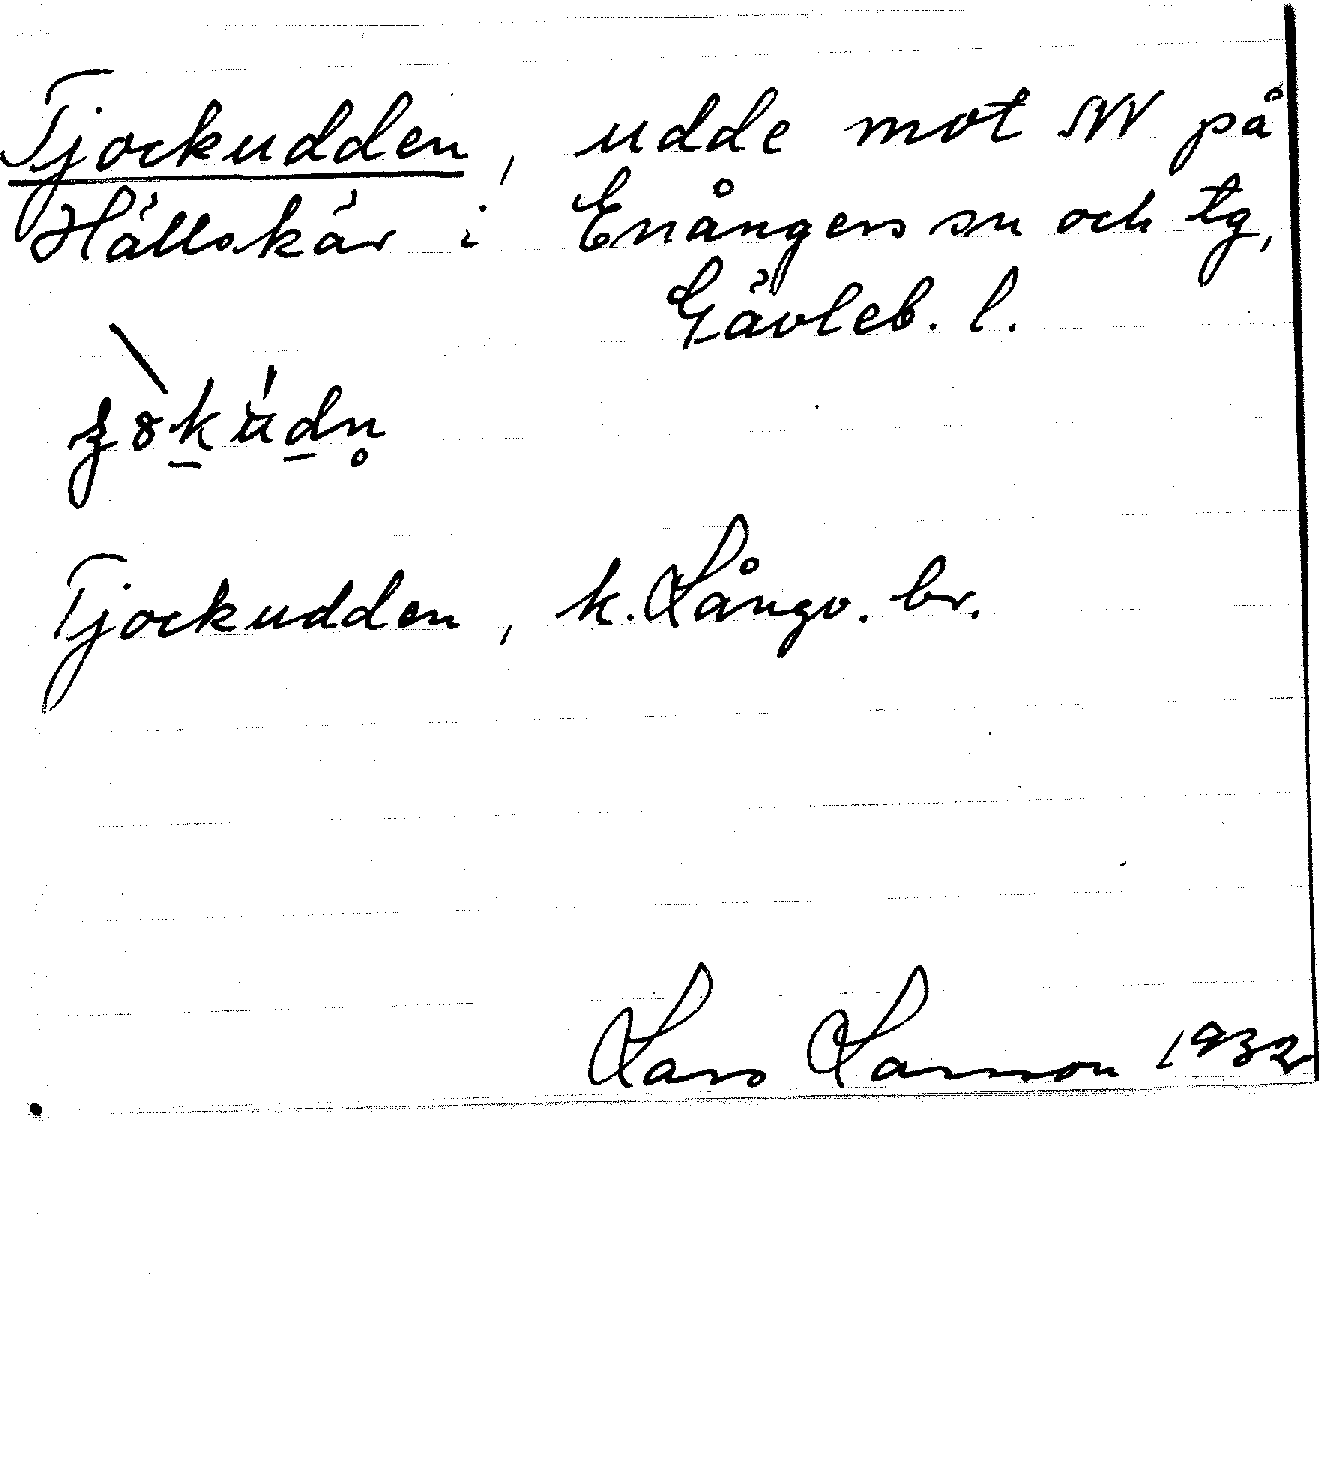 Tjockudden, udde mot NV på
Hällskär i Enångers sn och tg,
Gävleb. l.
Tjockudden, k. Långv. br.
Lars Larsson 1932